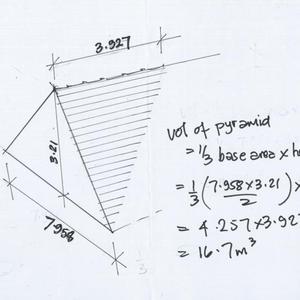 3.927
3.21
7.958
vol of pyramid
= 1/3 base area x h
= 1/3 (7.958 x 3.21 / 2) x
= 4.257 x 3.92
= 16.7 m³
1/3